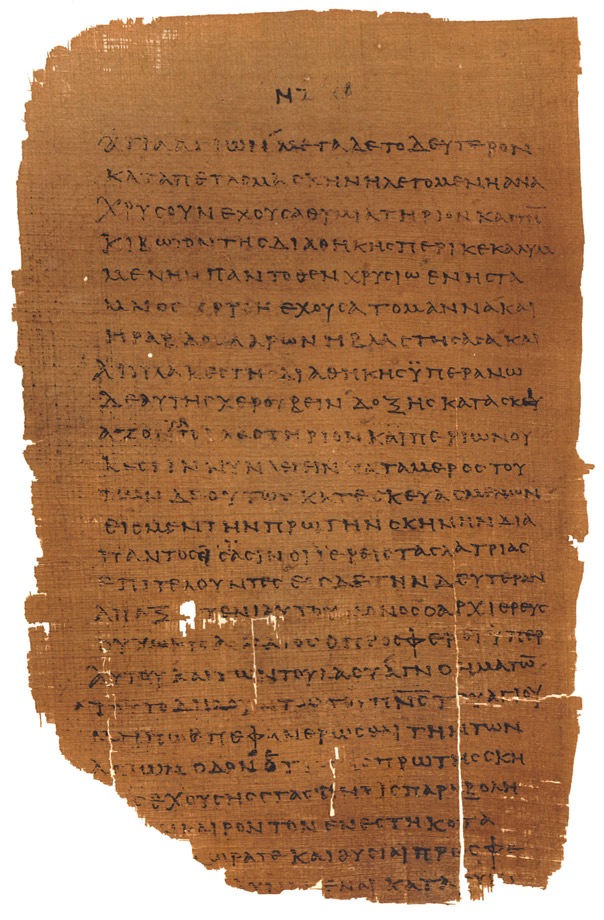 ΑΓΙΑ ΑΓΙΩΝ ΜΕΤΑΔΕΤΟΔΕΥΤΕΡΟΝ
ΚΑΤΑΠΕΤΑϹΜΑ ϹΚΗΝΗΗΛΕΓΟΜΕΝΗΑΝΑ
ΧΡΥϹΟΥΝΕΧΟΥϹΑΘΥΜΙΑΤΗΡΙΟΝ ΚΑΙΤΗ̅
ΚΙΒΩΤΟΝΤΗϹΔΙΑΘΗΚΗϹΠΕΡΙΚΕΚΑΛΥΜ
ΜΕΝΗΝ ΠΑΝΤΟΘΕΝ ΧΡΥϹΙΩ ΕΝΗϹΤΑ
ΜΝΟϹ ΕΧΟΥϹΑΤΟΜΑΝΝΑΚΑΙ
ΗΡΑΒΔΟϹ ΑΑΡΩΝΗΒΛΑϹΤΗϹΑϹΑ ΚΑΙ
ΑΙΠΛΑΚΕϹΤΗϹΔΙΑΘΗΚΗϹ ΫΠΕΡΑΝΩ
ΔΕΑΥΤΗϹΧΕΡΟΥΒΕΙΝ ΔΟΞΗϹ ΚΑΤΑϹΚΙ
ΑΖΟΝΤΑ ΙΛΑϹΤΗΡΙΟΝ ΚΑΙΠΕΡΙΩΝΟΥ
ΚΕϹΤΙΝΝΥΝΛΕΓΕΙΝ ΚΑΤΑΜΕΡΟϹΤΟΥ
ΤΩΝ ΔΕΟΥΤΩϹ ΚΑΤΕϹΚΕΥΑϹΜΕΝΩΝ
ΕΙϹΜΕΝΤΗΝΠΡΩΤΗΝϹΚΗΝΗΝΔΙΑ
ΠΑΝΤΟϹΕΙϹΪΑϹΙΝΟΙΪΕΡΕΙϹΤΑϹΛΑΤΡΙΑϹ
ΕΠΙΤΕΛΟΥΝΤΕϹ ΕΙϹΔΕΤΗΝΔΕΥΤΕΡΑΝ
ΑΠΑΞ ΤΟΥΕΝΙΑΥΤΟΥΜΟΝΟϹΟΑΡΧΙΕΡΕΥϹ
ΟΥΧΩΡΙϹΑΙΜΑΤΟϹ ΟΠΡΟϹΦΕΡΕΙΫΠΕΡ
ΑΥΤΟΥ ΚΑΙΤΩΝΤΟΥΛΑΟΥΑΓΝΟΗΜΑΤΩ̅
ΤΟΥΤΟΔΗΛΟΥΝΤΟϹΤΟΥΠΝ̅Ϲ̅ΤΟΥΑΓΙΟΥ
ΜΗΠΩ ΠΕΦΑΝΕΡΩϹΘΑΙΤΗΝΤΩΝ
ΑΓΙΩΝΟΔΟΝ ΠΡΩΤΗϹϹΚΗ
ΕΧΟΥϹΗϹϹΤΑϹΙΝΗΤΙϹΠΑΡΑΒΟΛΗ
ΚΑΙΡΟΝΤΟΝΕΝΕϹΤΗΚΟΤΑ
ΔΩΡΑΤΕ ΚΑΙΘΥϹΙΑΙΠΡΟϹΦΕ
ΚΑΤΑ